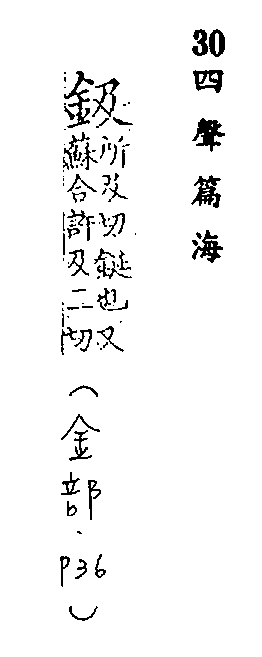 30四聲篇海
鈒
所及切鋋也又
蘇合許及二切
(金部.P36)